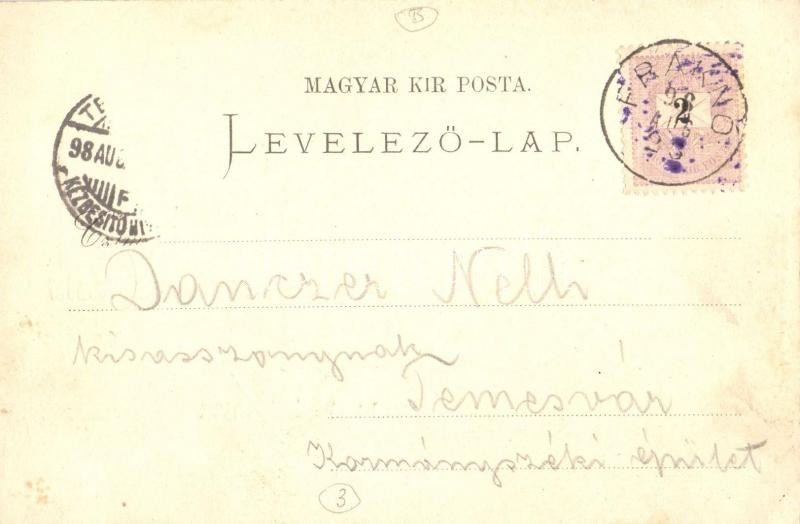 MAGYAR KIR POSTA.
LEVELEZŐ-LAP.
FRAKNÓ
98
2
98 AUG
F
KÉZBESÍTŐ
Danczer Nelli
kisasszonynak
Temesvár
Kormányszéki épület
3